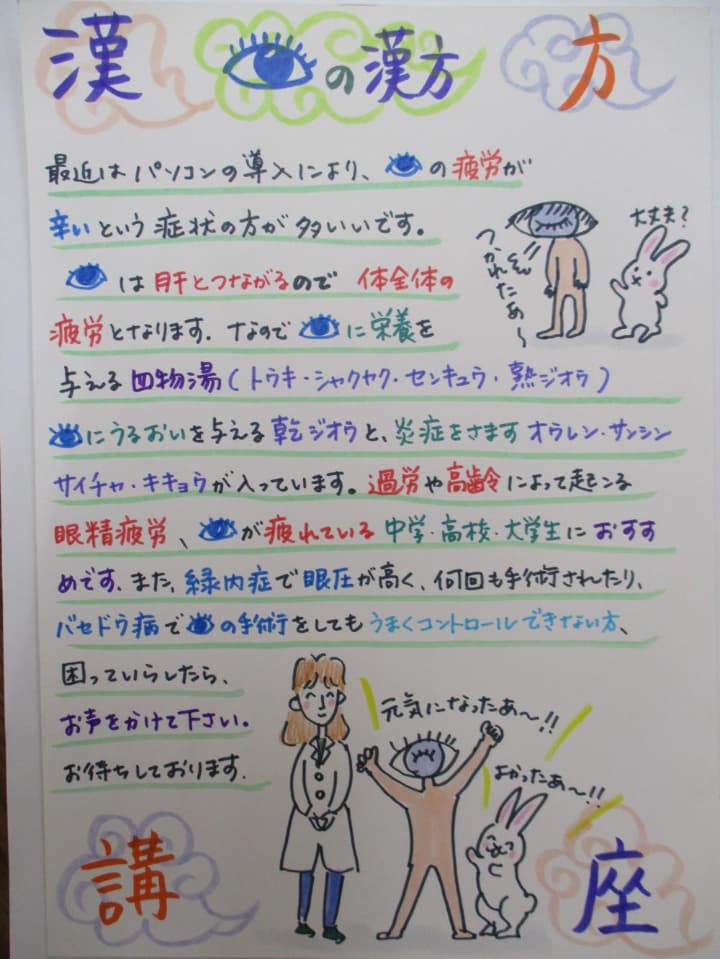 漢 の漢方 方
最近はパソコンの導入により、 の疲労が
辛いという症状の方が多いいです。
は肝とつながるので 体全体の
疲労となります。なので に栄養を
与える四物湯(トウキ・シャクヤク・センキュウ・熟ジオウ)
にうるおいを与える乾ジオウと、炎症をさます オウレン・サンシン
サイチャ・キキョウが入っています。過労や高齢によって起こる
眼精疲労、 が疲れている 中学・高校・大学生におすす
めです。また、緑内症で眼圧が高く、何回も手術されたり、
バセドウ病で の手術をしてもうまくコントロールできない方、
困っていらしたら、
お声をかけて下さい。
お待ちしております。
大丈夫?
つかれたぁ〜
元気になったあ〜!!
よかったあ〜!!
講 座